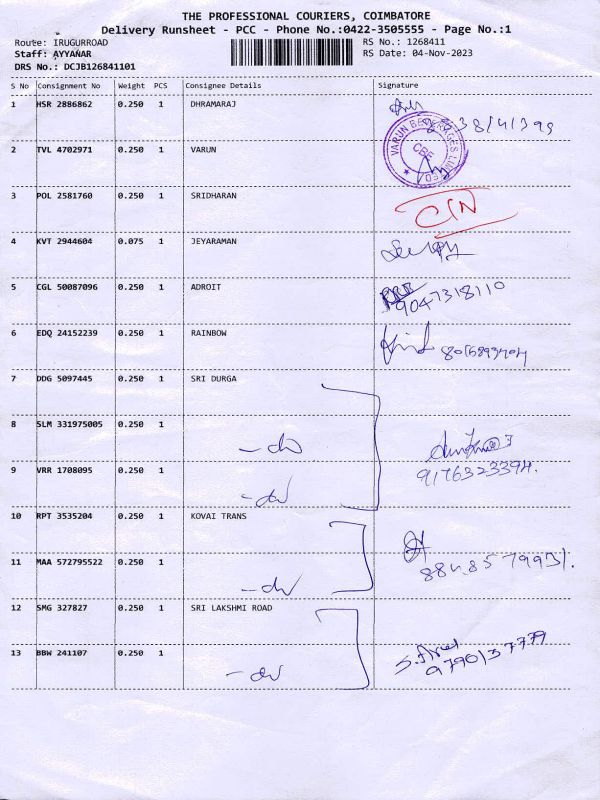 THE PROFESSIONAL COURIERS, COIMBATORE
Delivery Runsheet - PCC - Phone No.:0422-3505555 - Page No.:1
Route: IRUGURROAD RS No.: 1268411
Staff: AYYANAR RS Date: 04-Nov-2023
DRS No.: DCJB126841101
S No Consignment No Weight PCS Consignee Details Signature
1 HSR 2886862 0.250 1 DHRAMARAJ
2 TVL 4702971 0.250 1 VARUN VARUN BEVERAGES LIMITED CBE
3 POL 2581760 0.250 1 SRIDHARAN
4 KVT 2944604 0.075 1 JEYARAMAN
5 CGL 50087096 0.250 1 ADROIT 9047318110
6 EDQ 24152239 0.250 1 RAINBOW
7 DDG 5097445 0.250 1 SRI DURGA
8 SLM 331975005 0.250 1 - do
9 VRR 1708095 0.250 1 - do 9176323394.
10 RPT 3535204 0.250 1 KOVAI TRANS
11 MAA 572795522 0.250 1 - do
12 SMG 327827 0.250 1 SRI LAKSHMI ROAD
13 BBW 241107 0.250 1 - do 9790137779